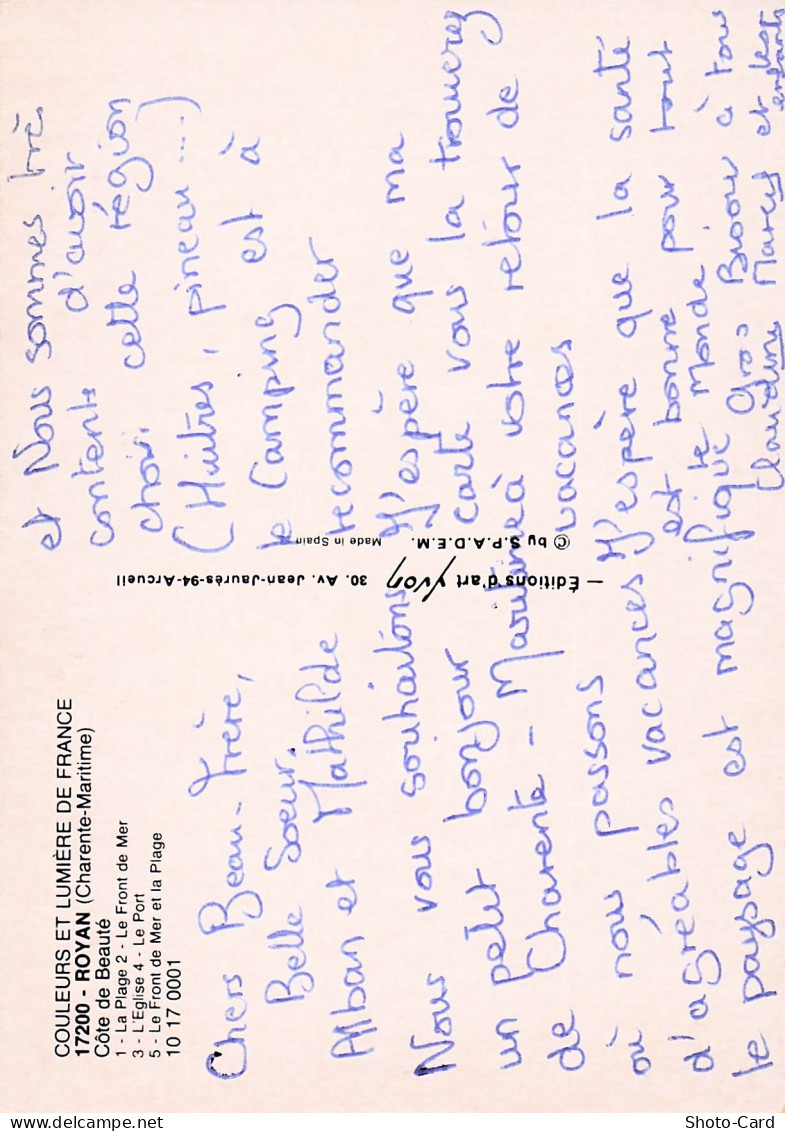 COULEURS ET LUMIÈRE DE FRANCE
17200 - ROYAN (Charente-Maritime)
Côte de Beauté
1 - La Plage 2 - Le Front de Mer
3 - L'Eglise 4 - Le Port
5 - Le Front de Mer et la Plage
10 17 0001
Chers Beau-Frère,
Belle Soeur,
Alban et Mathilde
Nous vous souhaitons
un petit bonjour
de Charente-Maritime
où nous passons
d'agréables vacances
le paysage est magnifique
et Nous sommes trè
contents d'avoir
choisi cette région
(Huitres, pineau...)
le Camping est à
recommander
J'espère que ma
carte vous la trouverez
à votre retour de
vacances
J'espère que la santé
est bonne pour tout
le monde
Gros Bisous à tous
Claudine Marcel et les
enfants
— Éditions d'art Yvon 30. Av. Jean-Jaurès-94-Arcueil
© by S.P.A.D.E.M. Made in Spain
Shoto-Card